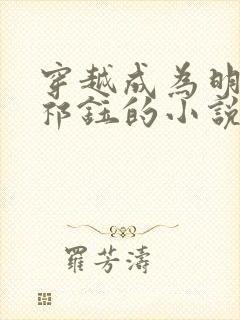 穿越成為明
祁鈺的小說
羅芳濤